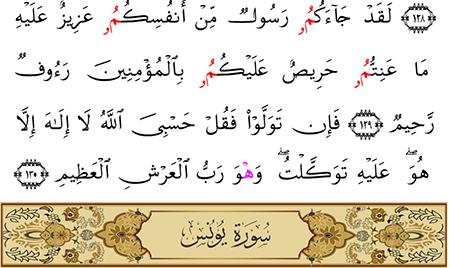 ﴿١٢٨﴾ لَقَدْ جَآءَكُمُۥ رَسُولٌ مِّنْ أَنفُسِكُمُۥ عَزِيزٌ عَلَيْهِ
مَا عَنِتُّمُۥ حَرِيصٌ عَلَيْكُمُۥ بِالْمُؤْمِنِينَ رَءُوفٌ
رَّحِيمٌ ﴿١٢٩﴾ فَإِن تَوَلَّوْاْ فَقُلْ حَسْبِيَ اللَّهُ لَا إِلَٰهَ إِلَّا
هُوَۖ عَلَيْهِ تَوَكَّلْتُۖ وَهْوَ رَبُّ الْعَرْشِ الْعَظِيمِ ﴿١٣٠﴾
سُورَةُ يُونُسَ